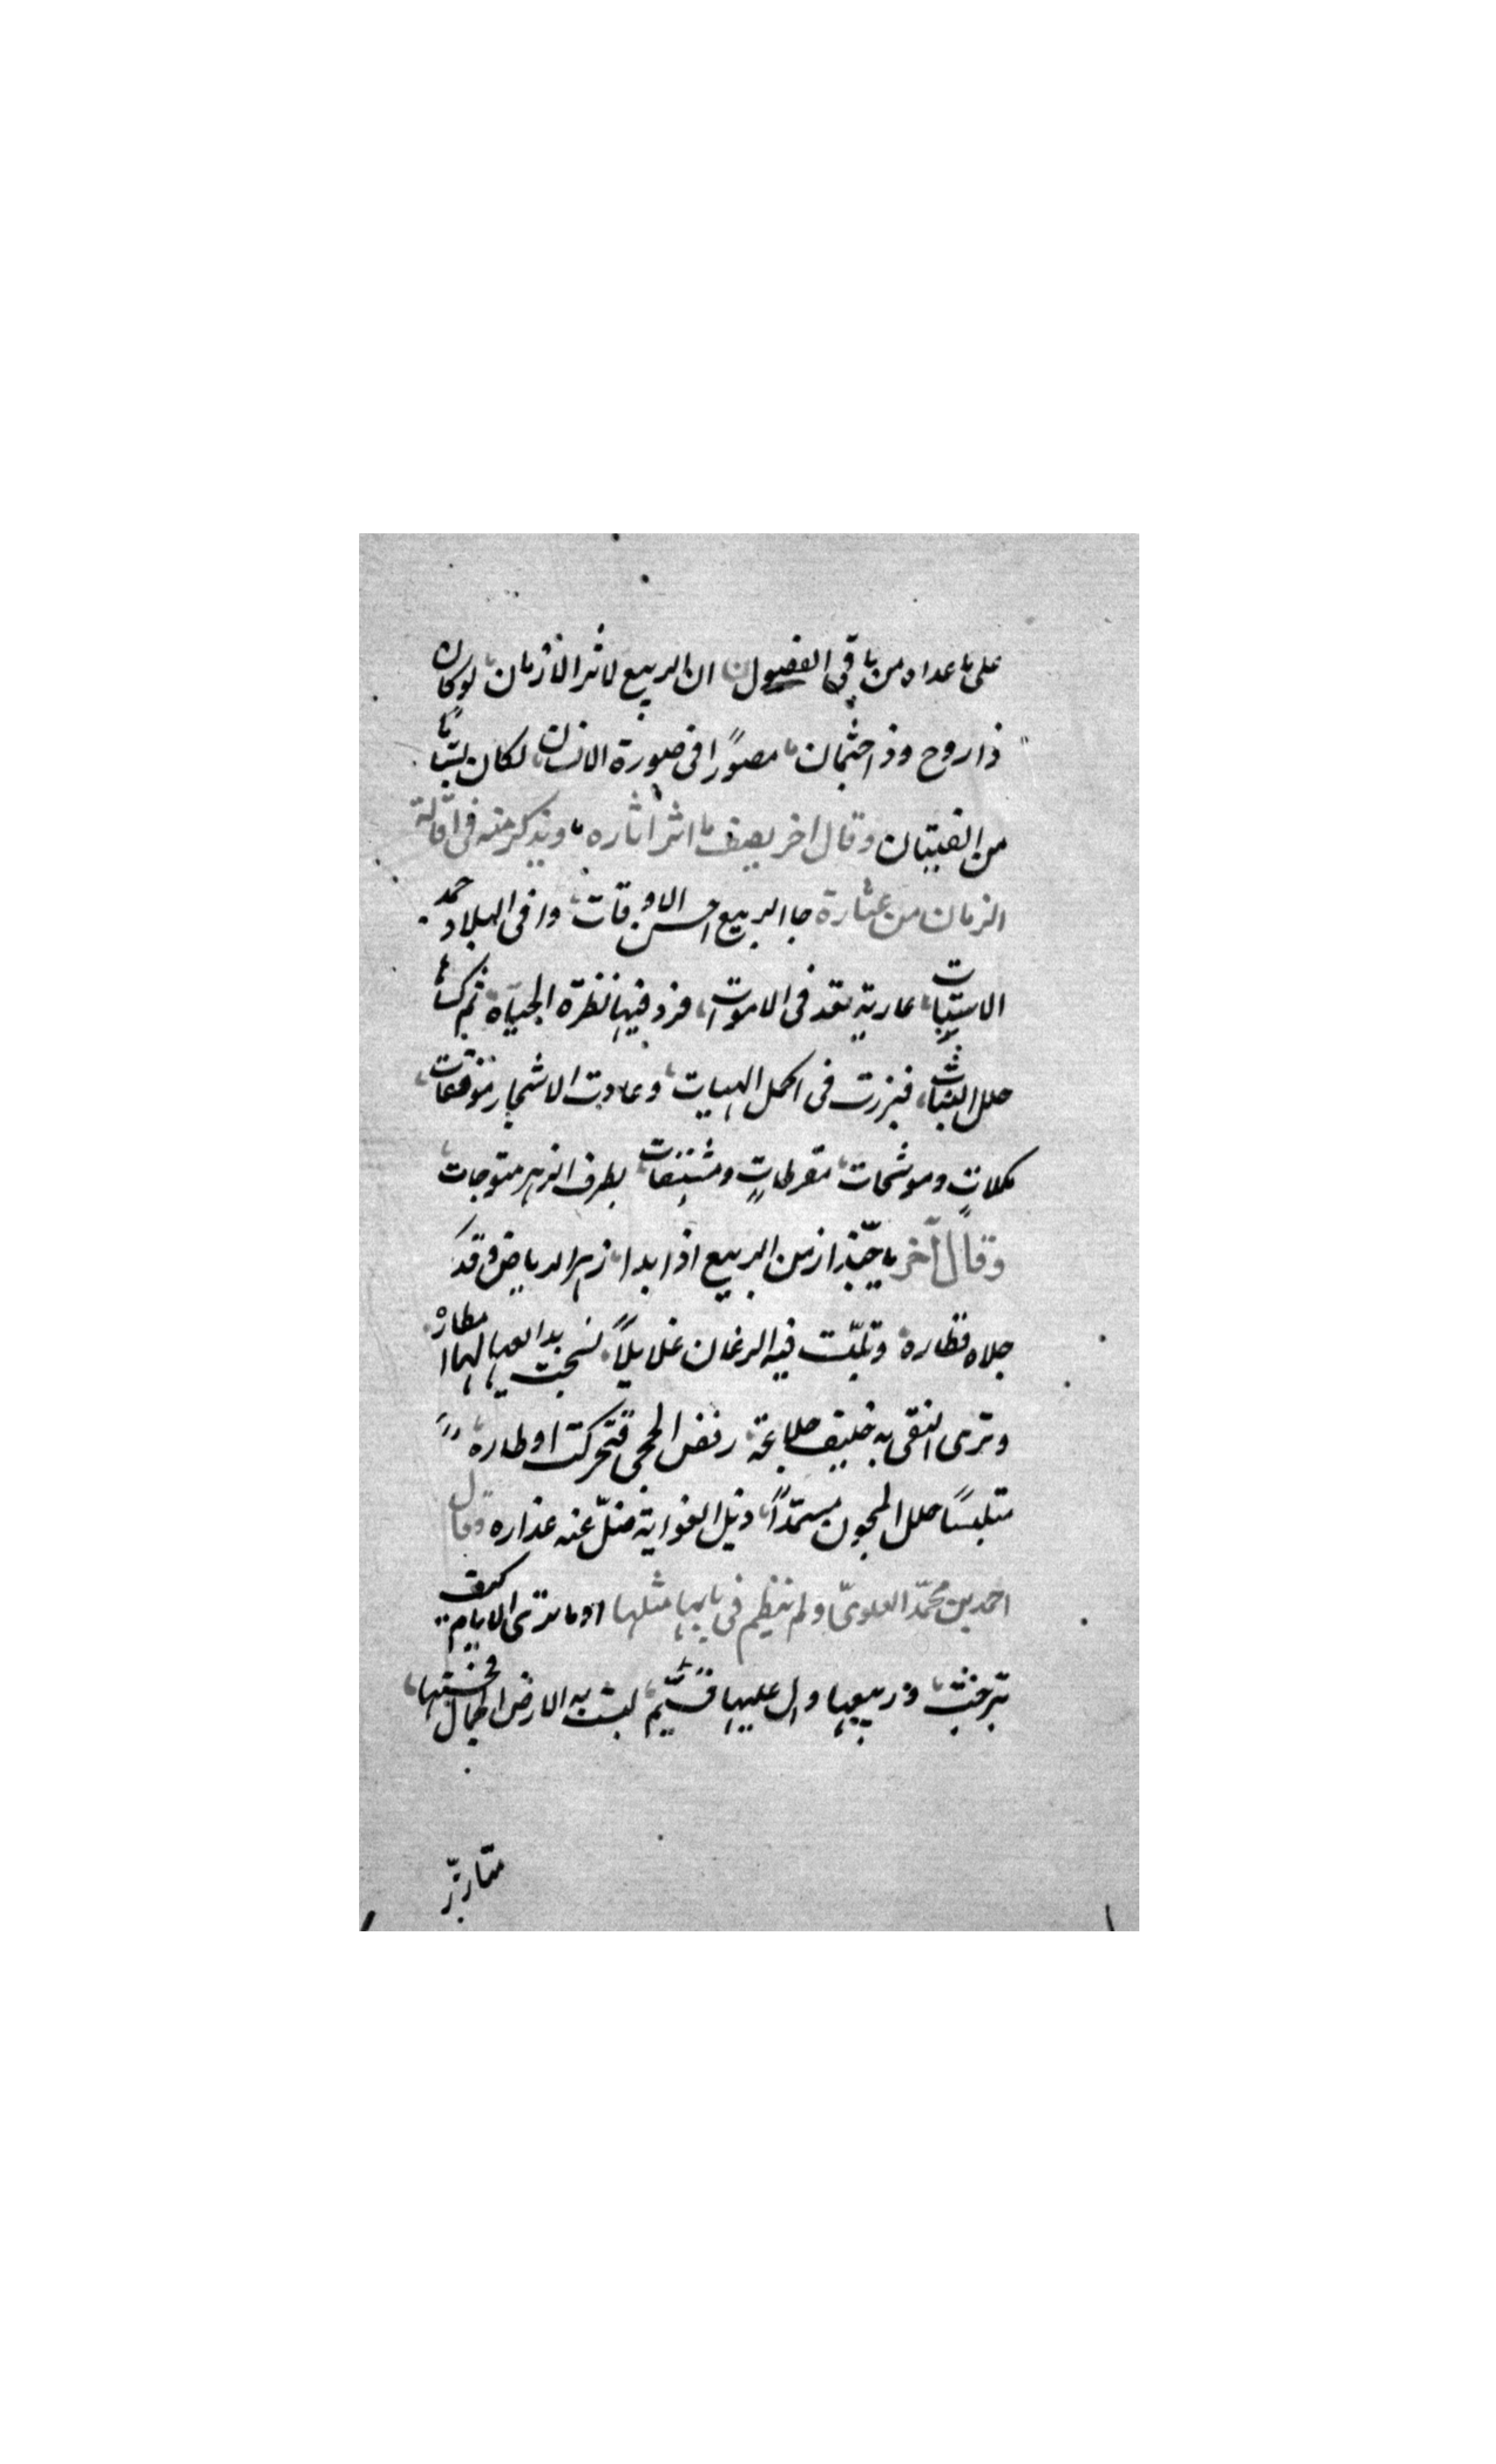 على ما عداه من باقى الفصول ان الربيع لاثر الازمان لو كان
ذا روح وذا جثمان مصوّرًا فى صورة الانسان لكان بسّاما
من الفتيان وقال اخر يصف ما اثر اثاره ويذكر منه فى اقالة
الزمان من عثاره جا الربيع احسن الاوقات وافى البلاد
عارية تعد فى الاموات فرد فيها نظرة الحياة ثم كساها
حلل النبات فبرزت فى اكمل الهيات وعادت الاشجار
مكللاتٍ وموشحات مقرطاتٍ ومشنفات بطرف الزهر متوجات
وقال آخر يا حبّذا زمن الربيع اذا بدا زهر الرياض وقد
جلاه قطاره فيه الرعان غلايلاً نسجت يد لها امطاره
وترى التقى به خليف خلاعة رفض الحجى فتحركت اوطاره
متلبسًا حلل المجون ذيل الغواية ضلّ عنه عذاره وقال
احمد بن محمّد العلوىّ ولم ينظم فى بابها مثلها اوما ترى الايام كيف
تبرجت وربيعها وال عليها قيّم لبست به الارض الجمال فحسنها
متازّر